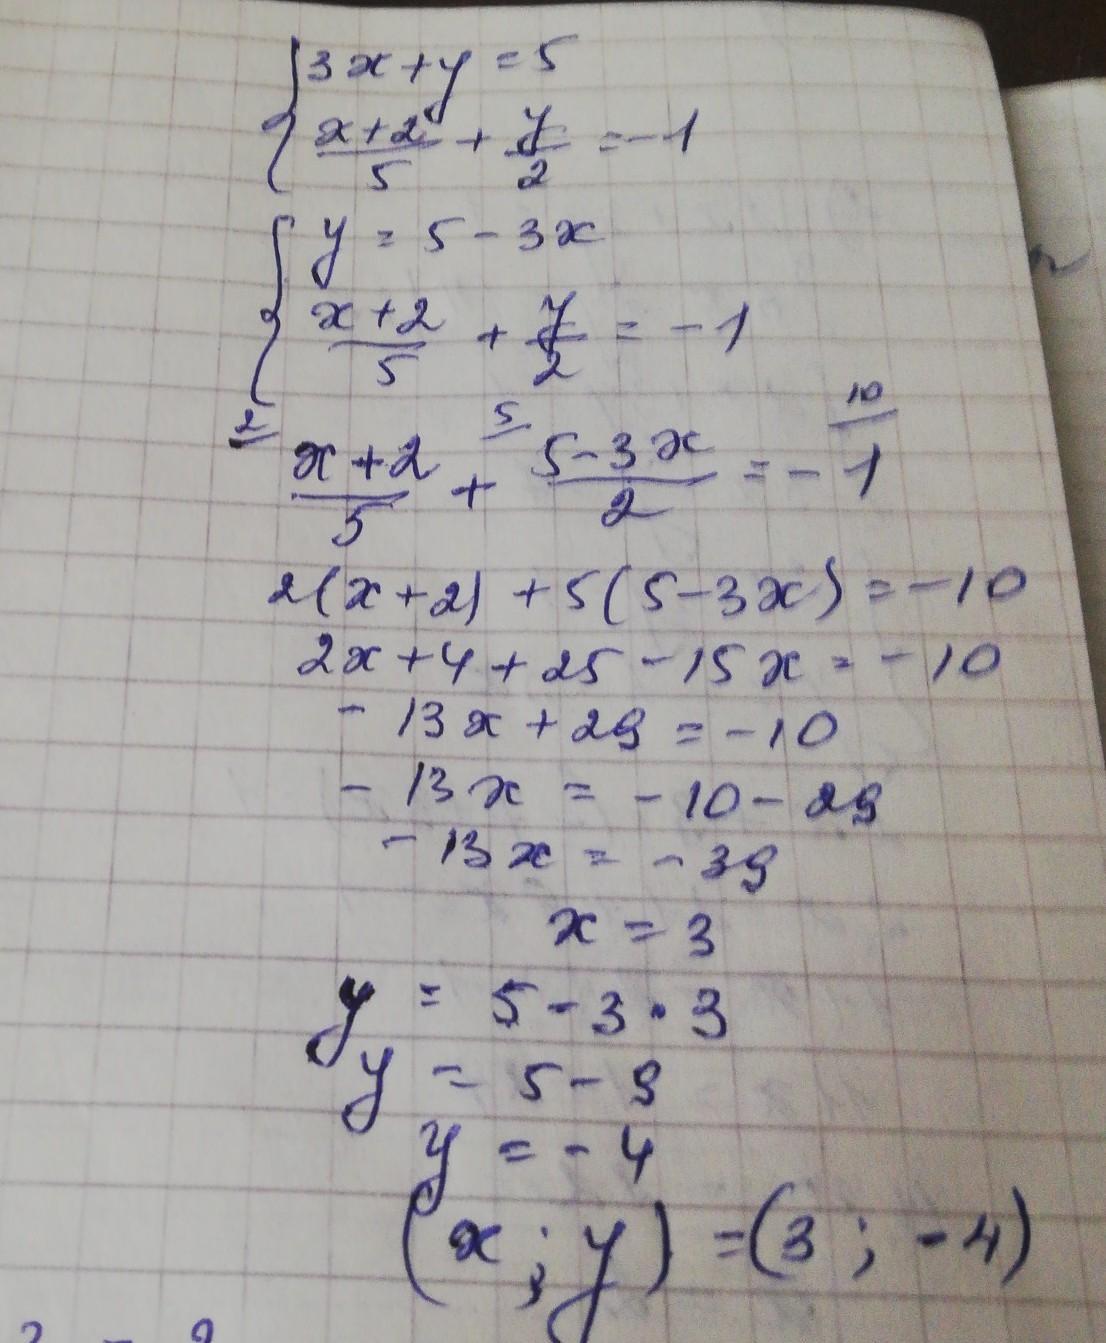 3x+y=5
(x+2)/5 + y/2 = -1
y = 5-3x
(x+2)/5 + y/2 = -1
2 5 10
(x+2)/5 + (5-3x)/2 = -1
2(x+2) + 5(5-3x) = -10
2x+4+25-15x = -10
-13x+29 = -10
-13x = -10-29
-13x = -39
x = 3
y = 5-3·3
y = 5-9
y = -4
(x ; y) = (3 ; -4)